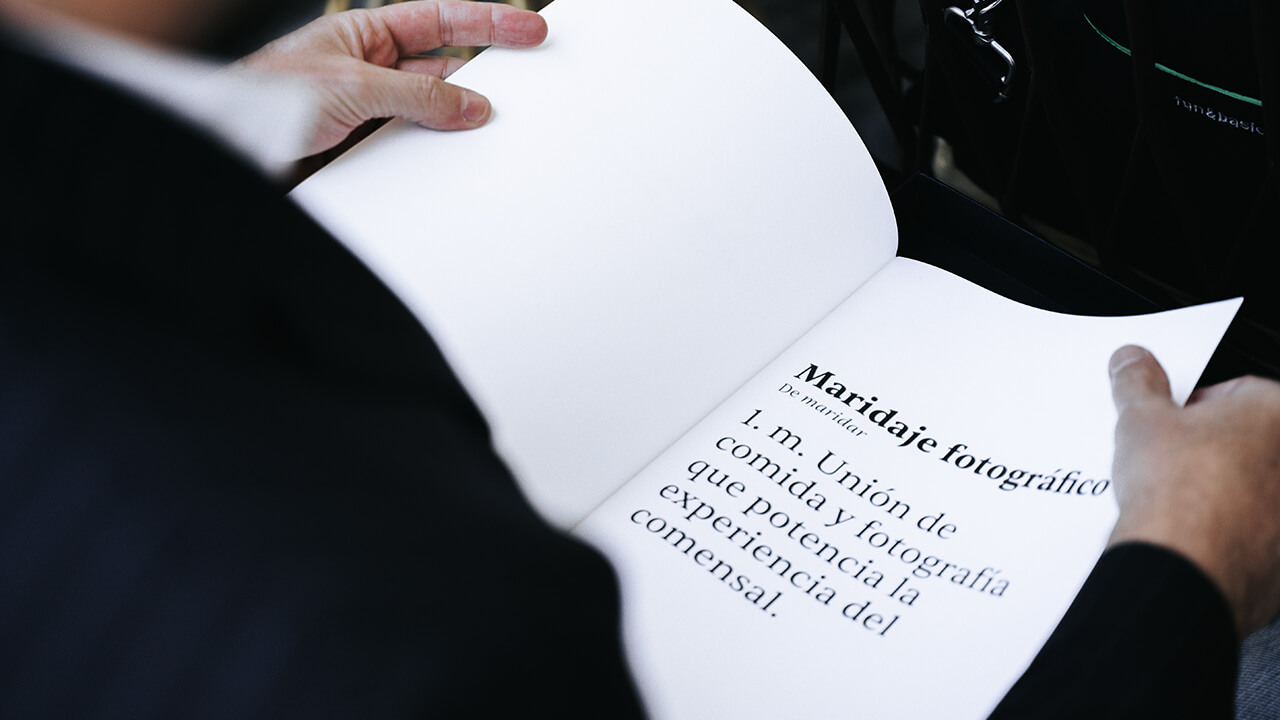 Maridaje fotográfico
De maridar
1. m. Unión de
comida y fotografía
que potencia la
experiencia del
comensal.
fun&basic